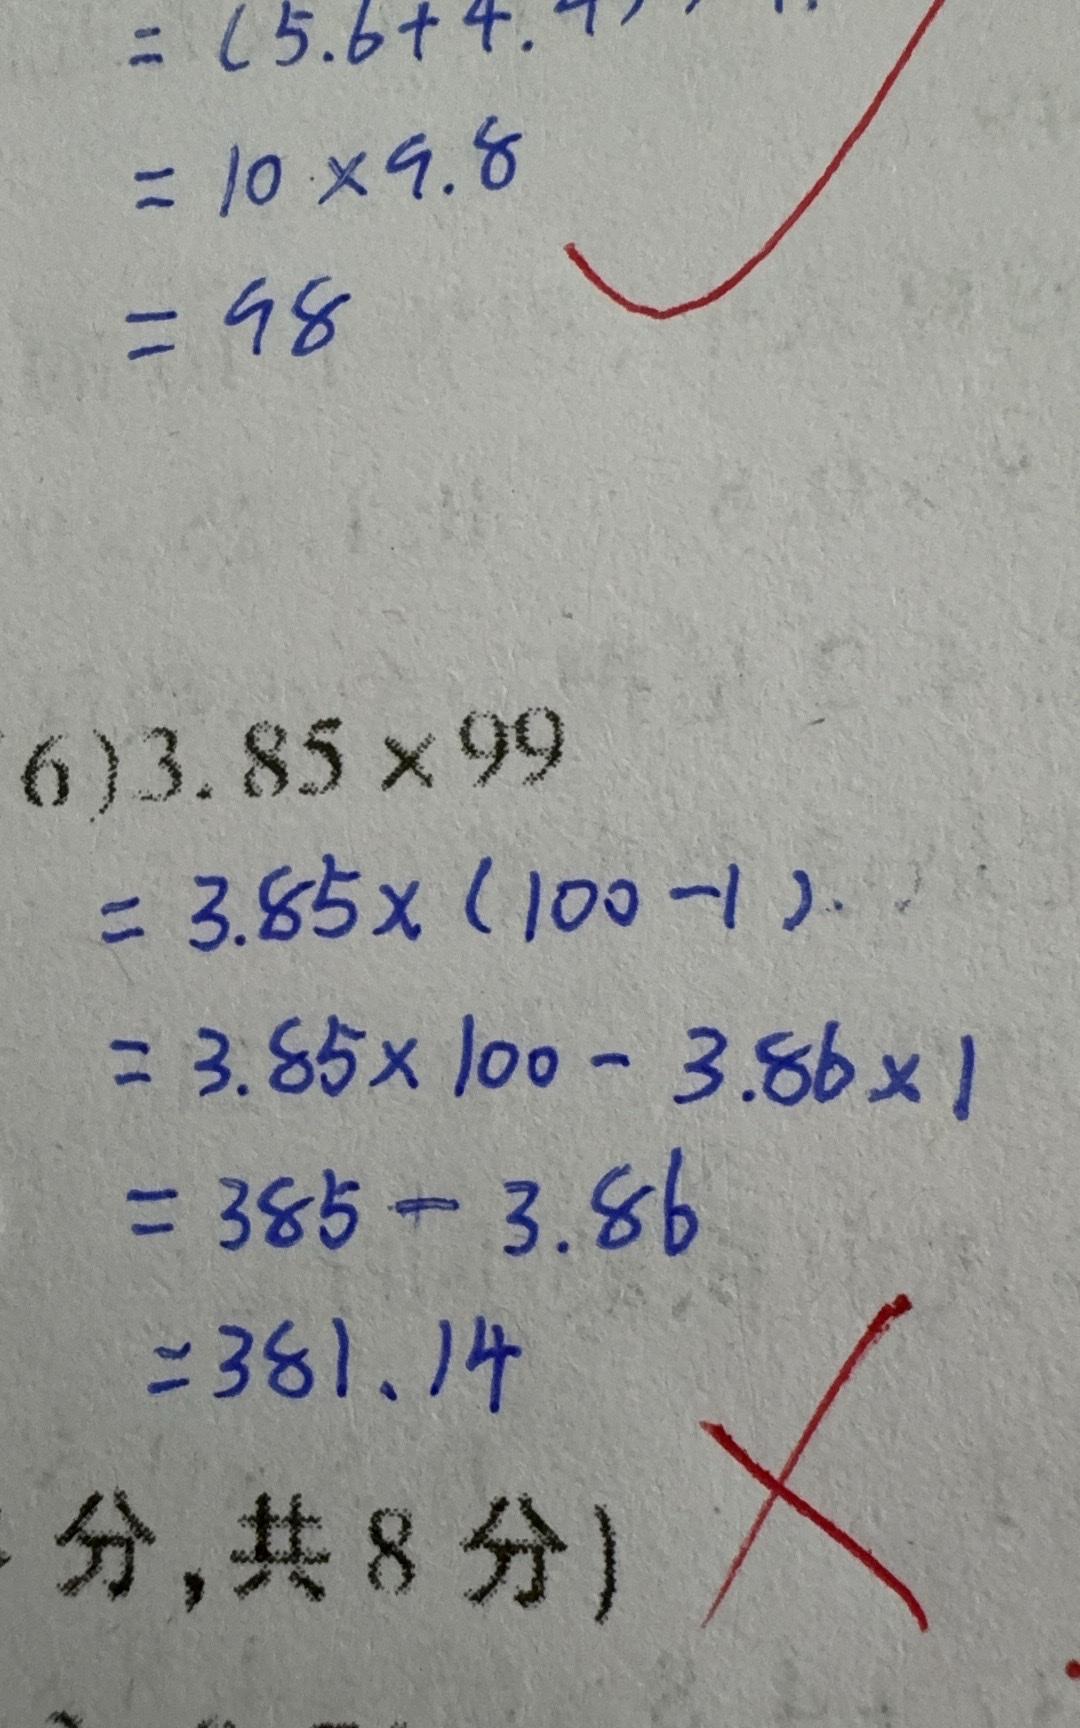 = (5.6+4.4)
= 10 × 9.8
= 98
6) 3.85 × 99
= 3.85 × (100 - 1).
= 3.85 × 100 - 3.86 × 1
= 385 - 3.86
= 381.14
分,共8分)